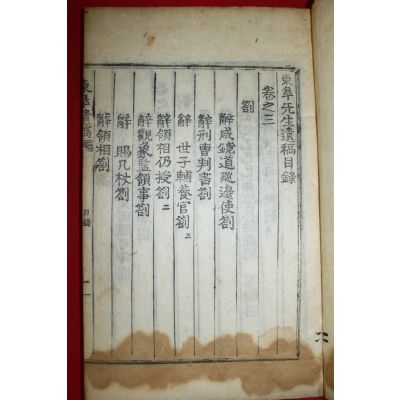 東皐先生遺稿目錄
卷之三
劄
辭咸鏡道巡邊使劄
辭刑曹判書劄
辭 世子輔養官劄二
辭領相仍授劄二
辭觀象監領事劄
辭 賜几杖劄
辭領相劄
東皐遺稿
目錄
一